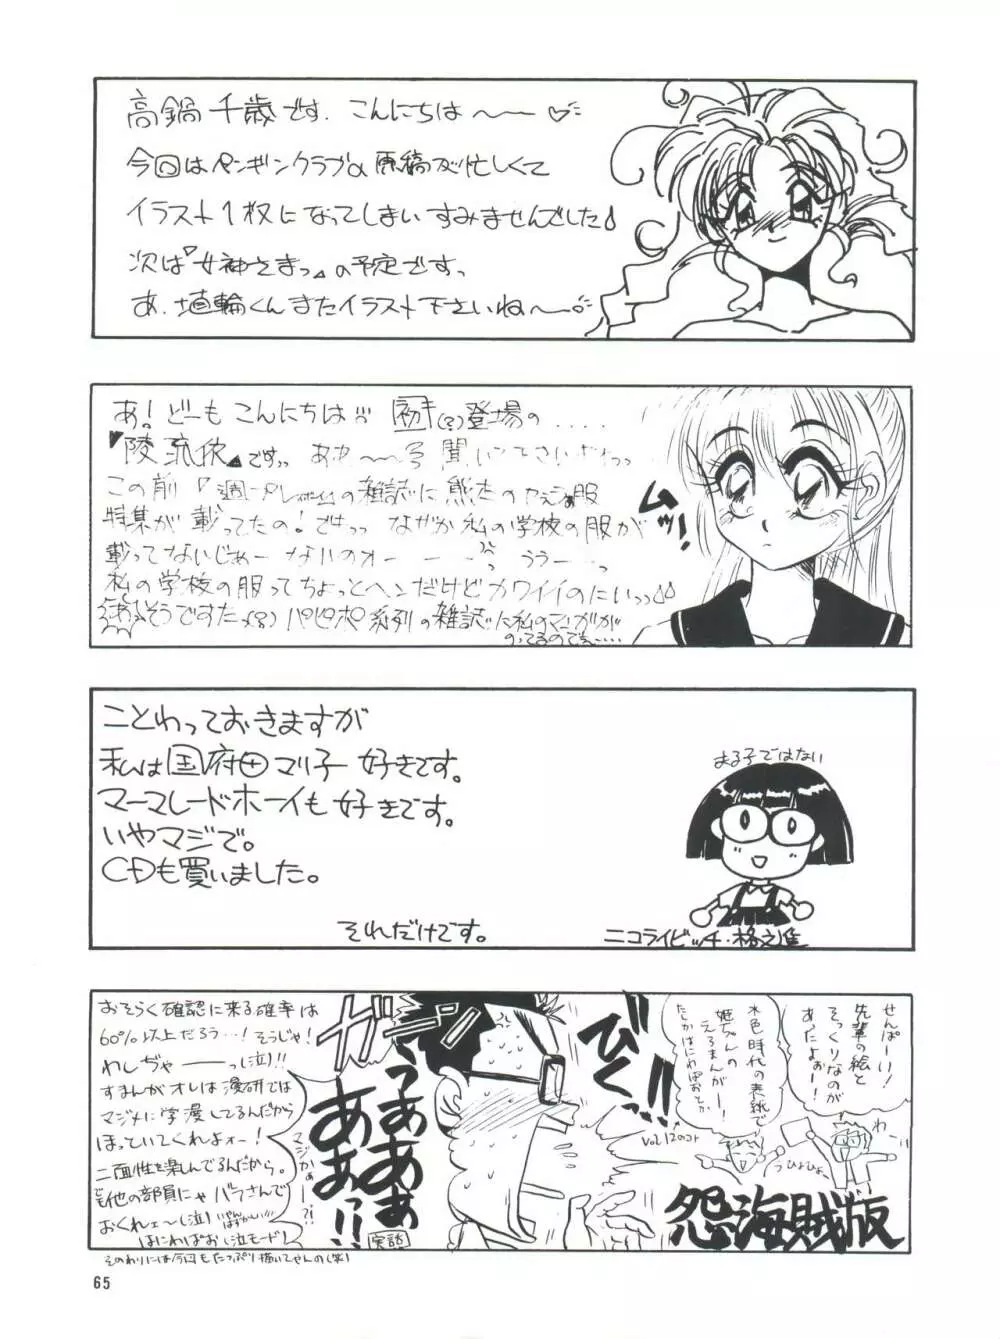 高鍋千歳です. こんにちは〜〜♡
今回はペンギンクラブの原稿が忙しくて
イラスト1枚になってしまいすみませんでした♪
次は『女神さまっ』の予定ですっ
あ. 埴輪くんまたイラスト下さいね〜♡
あ!どーもこんにちは!!! 初(?)登場の.....
この前『週一プレイボーイ』の雑誌に
特集が載ってたの!ですっっ なぜか私の学校の服が
載ってないじゃー ないのォーーー うぅーーっ
私の学校の服ってちょっとヘンだけどカワイイのにいっっ♪♪
そうですたっ(?) パピポ系列の雑誌に私のマンガが
のってるのでぇ……
ムッ!
ことわっておきますが
私は国府田マリ子好きです。
マーマレードボーイも好きです。
いやマジで。
CDも買いました。
それだけです。
まる子ではない
ニコライビッチ・格之進
せんぱーい!
先輩の絵と
そっくりなのが
あったよぉー!
水色時代の表紙で
姫ちゃんの
えろまんがー!
たしかはにわばおとか
Vol.12のコト
わーい
うひょひょ
怨海賊版
びくっ
ガーン
うああああ
ああ!!
マジかぁー!?
実話
おそらく確認に来る確率は
60%以上だろう…!そうじゃ!
わしぢゃーーっ(泣)!!
すまんがオレは漫研では
マジメに学漫してるんだから
ほっといてくれよォー!
二面性を楽しんでるんだから。
でも他の部員にゃバラさんで
おくれェ〜(泣) いやんはずかしい!!!
はにわばお(泣モード)
そのわりには今回もたっぷり描いてやんの(笑)
65